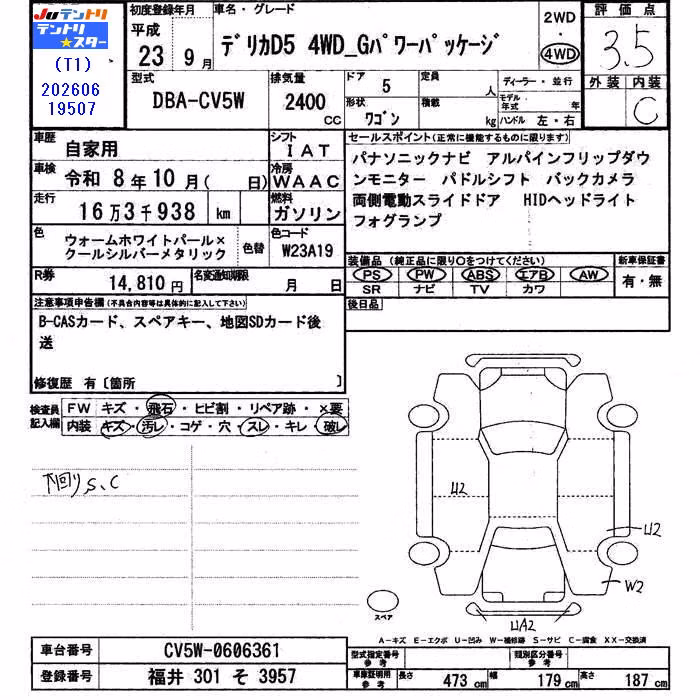 Juテントリ
テントリ★スター
(T1)
202606
19507
初度登録年月
平成
23年9月
車名・グレード
デリカD5 4WD_Gパワーパッケージ
2WD
・
4WD
評価点
3.5
外装 内装
C
型式
DBA-CV5W
排気量
2400
CC
ドア
5
形状
ワゴン
定員
人
積載
kg
ディーラー・並行
モデル年式 年
ハンドル 左・右
車歴
自家用
シフト
IAT
車検
令和 8年10月( 日)
冷房
WAAC
走行
16万3千938 km
燃料
ガソリン
色
ウォームホワイトパール×
クールシルバーメタリック
色替
色コード
W23A19
R券
14,810円
名変通知期限
月 日
セールスポイント(正常に機能するものに限ります)
パナソニックナビ アルパインフリップダウ
ンモニター パドルシフト バックカメラ
両側電動スライドドア HIDヘッドライト
フォグランプ
装備品(純正品に限り○をつけてください)
PS PW ABS エアB AW
SR ナビ TV カワ
新車保証書
有・無
後日品
注意事項申告欄(不具合内容等は具体的に記入して下さい)
B-CASカード、スペアキー、地図SDカード後
送
修復歴 有〔箇所 〕
検査員
記入欄
FW キズ・飛石・ヒビ割・リペア跡・×要
内装 キズ・汚レ・コゲ・穴・スレ・キレ・破レ
下回りS、C
U2
U2
W2
UA2
スペア
A-キズ E-エクボ U-凹み W-補修跡 S-サビ C-腐食 XX-交換済
車台番号
CV5W-0606361
登録番号
福井 301 そ 3957
型式指定番号
参考
類別区分番号
参考
車庫証明用
参考
長さ 473 cm
幅 179 cm
高さ 187 cm